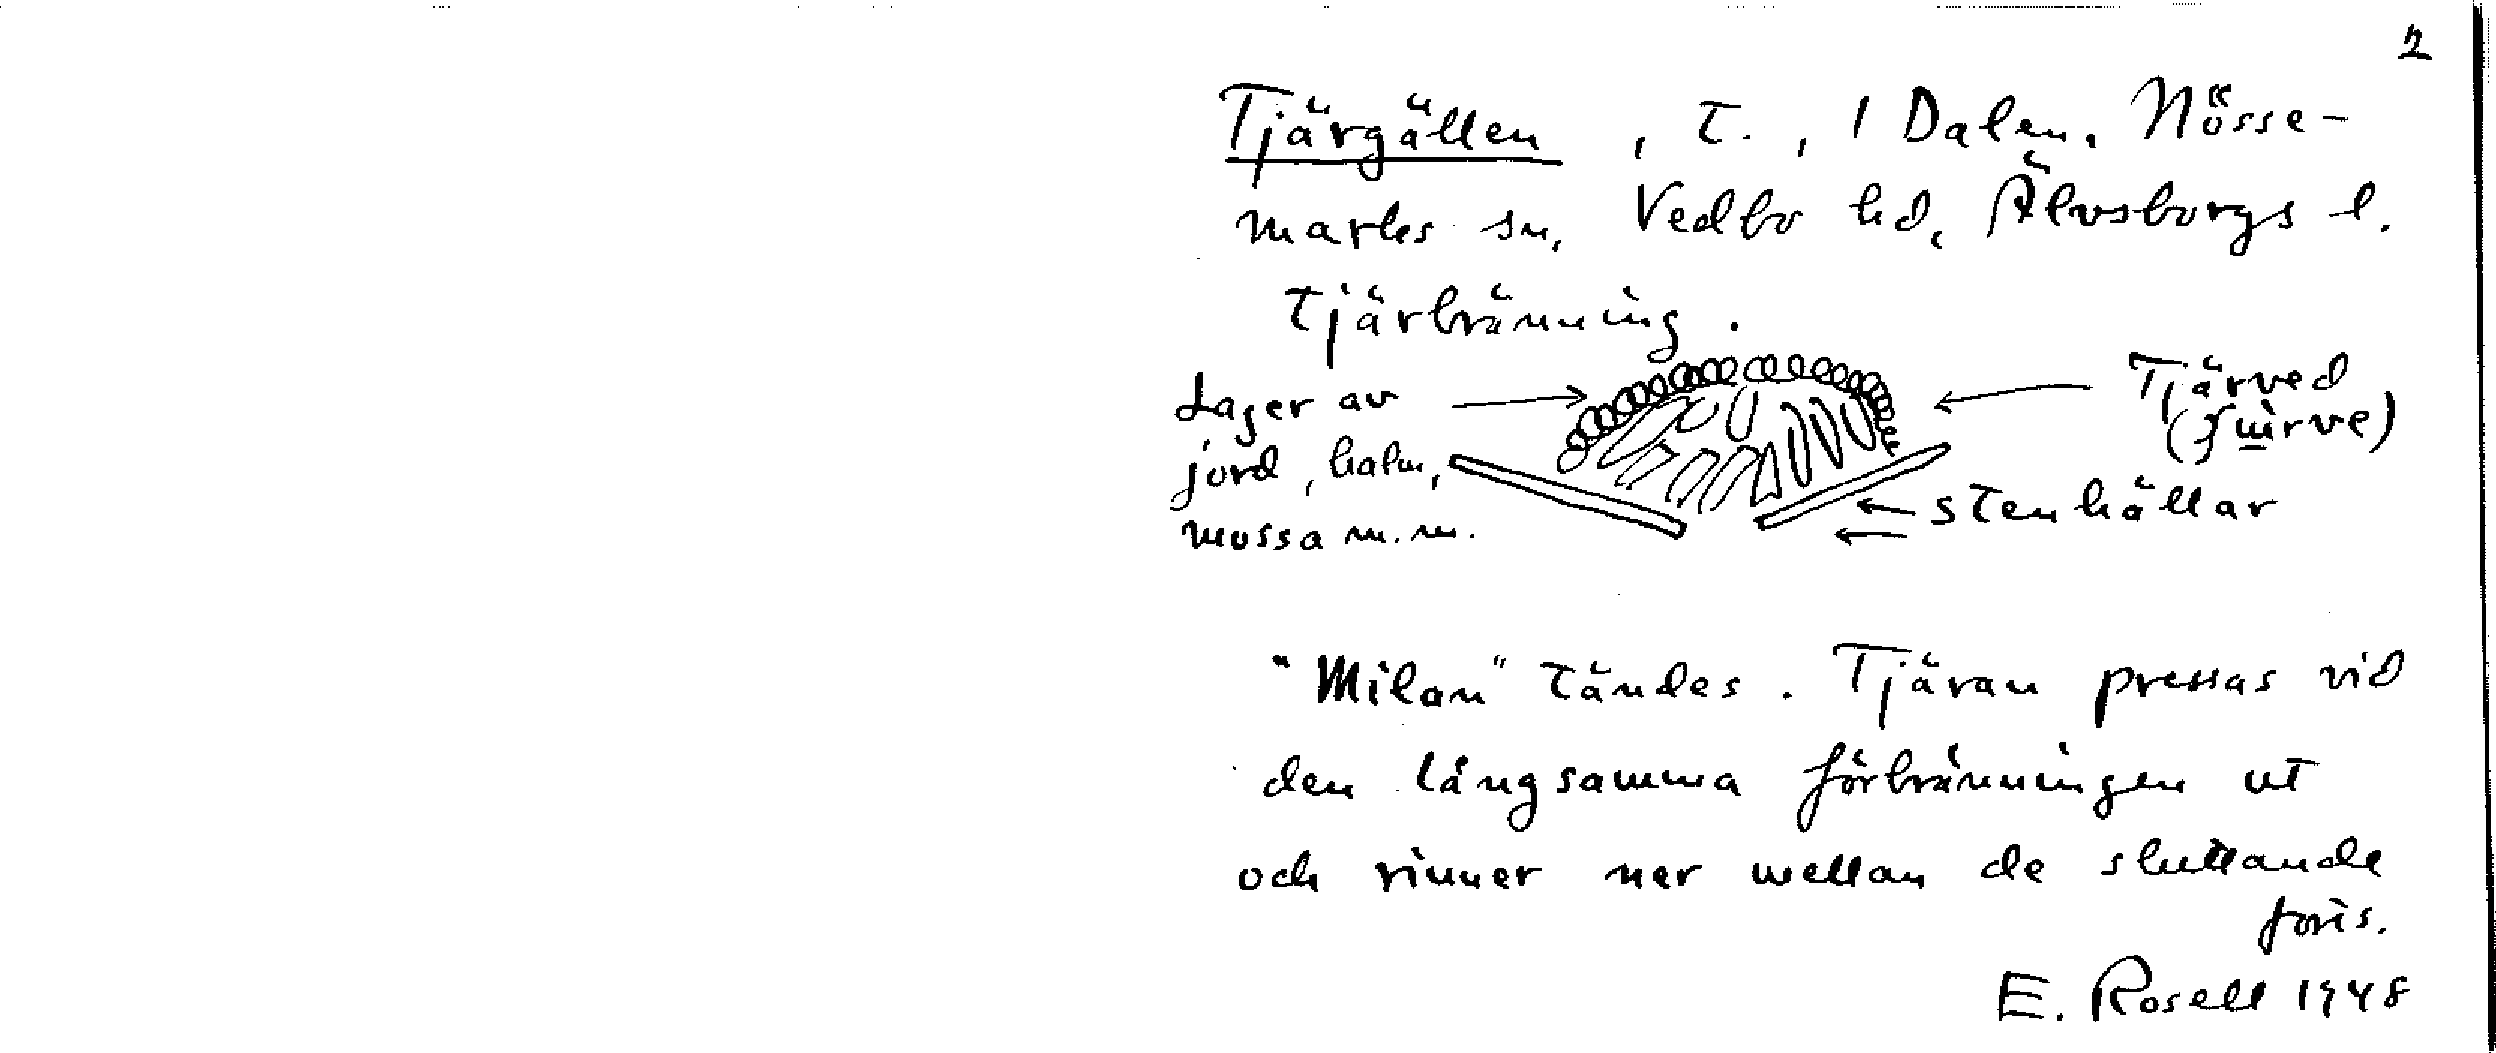 2
Tjärgällen, t., 1 Dalen, Nösse-
marks sn, Vedbo hd, Älvsborgs l.
Tjärbränning.
Lager av
jord, halm,
mossa m.m.
Tjärved
stenhällar
"Milan" tändes. Tjäran pressas vid
den långsamma förbränningen ut
och rinner ner mellan de sluttande
forts.
E. Rosell 1948